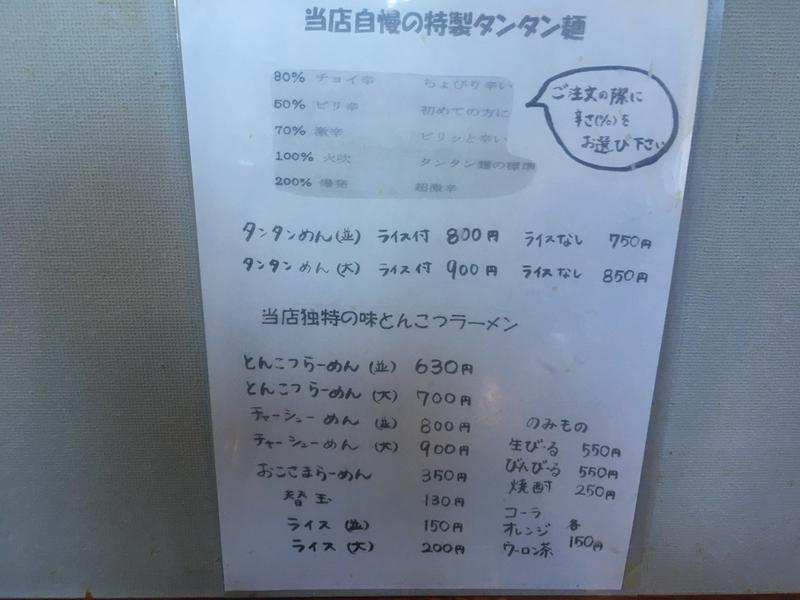 当店自慢の特製タンタン麺
80% チョイ辛 ちょびり辛い
50% ピリ辛 初めての方に
70% 激辛 ピリッと辛い
100% 火吹 タンタン麺の標準
200% 爆発 超激辛
ご注文の際に
辛さ(%)を
お選び下さい
タンタンめん(並) ライス付 800円 ライスなし 750円
タンタンめん(大) ライス付 900円 ライスなし 850円
当店独特の味とんこつラーメン
とんこつらーめん(並) 630円
とんこつらーめん(大) 700円
チャーシューめん(並) 800円
チャーシューめん(大) 900円
おこさまらーめん 350円
替玉 130円
ライス(並) 150円
ライス(大) 200円
のみもの
生びーる 550円
びんびーる 550円
焼酎 250円
コーラ
オレンジ 各
ウーロン茶 150円